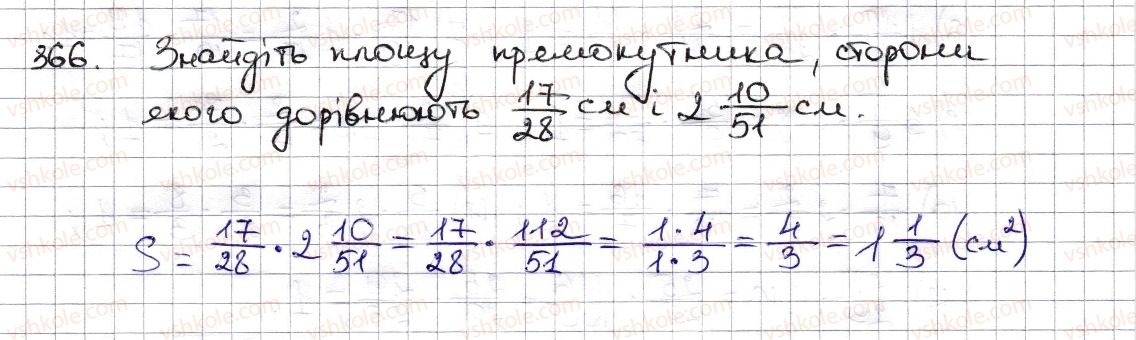 366. Знайдіть площу прямокутника, сторони
якого дорівнюють 17/28 см і 2 10/51 см.
S = 17/28 · 2 10/51 = 17/28 · 112/51 = 1·4/1·3 = 4/3 = 1 1/3 (см²)